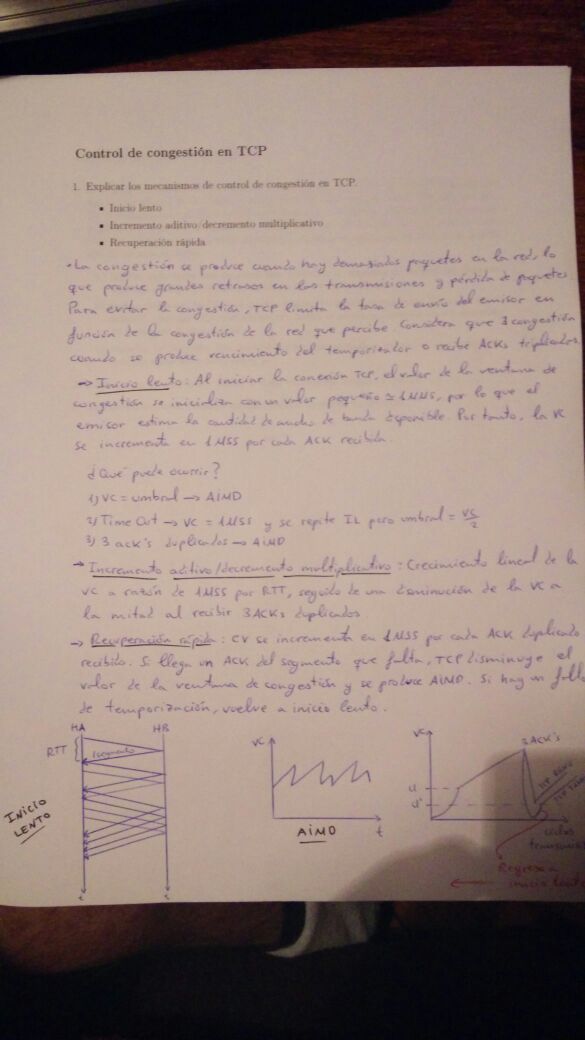 Control de congestión en TCP
1. Explicar los mecanismos de control de congestión en TCP.
• Inicio lento
• Incremento aditivo/decremento multiplicativo
• Recuperación rápida
• La congestión se produce cuando hay demasiados paquetes en la red, lo
que produce grandes retrasos en las transmisiones y pérdida de paquetes
Para evitar la congestión, TCP limita la tasa de envío del emisor en
función de la congestión de la red que percibe. Considera que ∃ congestión
cuando se produce vencimiento del temporizador o recibe ACKs triplicados.
→ Inicio lento: Al iniciar la conexión TCP, el valor de la ventana de
congestión se inicializa con un valor pequeño ≃ 1MMS, por lo que el
emisor estima la cantidad de ancho de banda disponible. Por tanto, la VC
se incrementa en 1 MSS por cada ACK recibido.
¿Qué puede ocurrir?
1) VC = umbral → AIMD
2) Time Out → VC = 1MSS y se repite IL pero umbral = VC/2
3) 3 ack's duplicados → AIMD
→ Incremento aditivo/decremento multiplicativo: Crecimiento lineal de la
VC a razón de 1MSS por RTT, seguido de una disminución de la VC a
la mitad al recibir 3ACKs duplicados.
→ Recuperación rápida: CV se incrementa en 1MSS por cada ACK duplicado
recibido. Si llega un ACK del segmento que falta, TCP disminuye el
valor de la ventana de congestión y se produce AIMD. Si hay un fallo
de temporización, vuelve a inicio lento.
HA HB
RTT
1segmento
INICIO
LENTO
t t
VC
t
AIMD
VC
3 ACK's
u
u'
TCP RENO
ciclos
transmisión
Regreso a
inicio lento